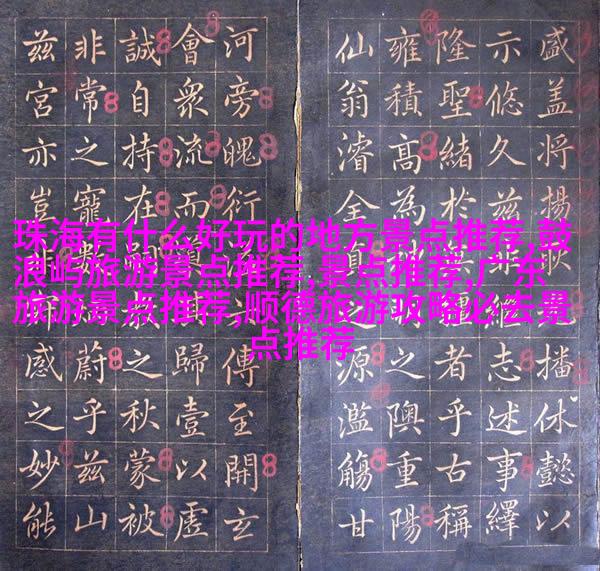 珠海有什么好玩的地方景点推荐,鼓
浪屿旅游景点推荐,景点推荐,广东
旅游景点推荐,顺德旅游攻略必去景
点推荐
盛盖將揚播休懿以
示悠久茲志述事繹
隆聖緒於者乎古稱
雍積高為之隩重陽
仙翁濬全源濫觴甘
河旁魄衍傳至開玄
會眾流而歸壹以虛
誠自持在之秋蒙被
非常之寵蔚乎茲山
茲宮亦豈感之妙能